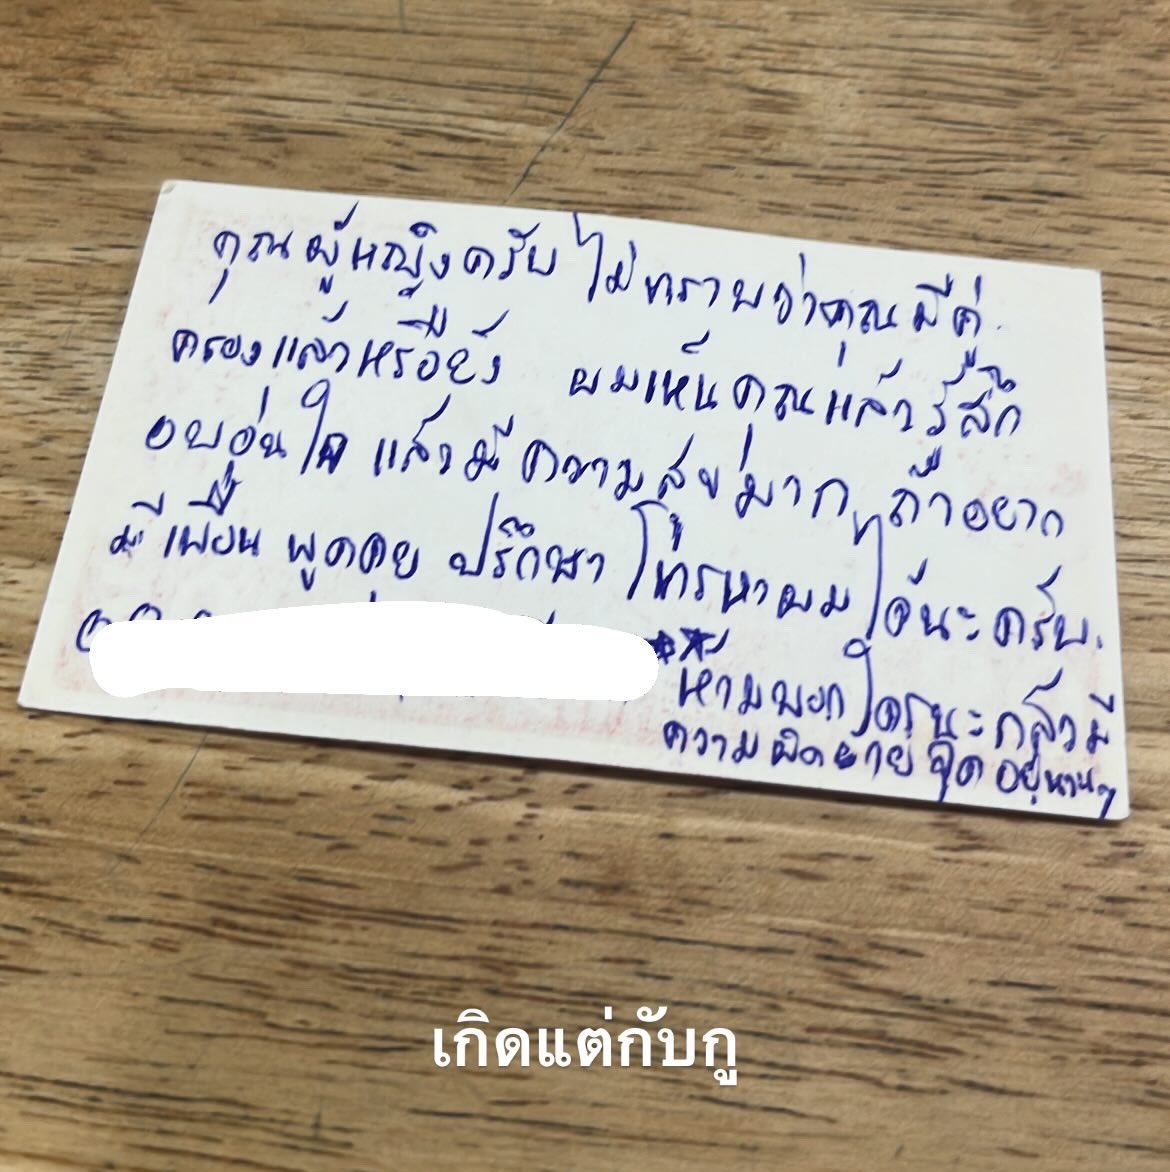 คุณผู้หญิงครับ ไม่ทราบว่าคุณมีคู่
ครองแล้วหรือยัง ผมเห็นคุณแล้วรู้สึก
อบอุ่นใจ แล้วมีความสุขมาก ถ้าอยาก
มีเพื่อน พูดคุย ปรึกษา โทรหาผมได้นะครับ.
ห้ามบอกใครนะ กลัวมี
ความผิด
อยู่นานๆ
เกิดแต่กับกู